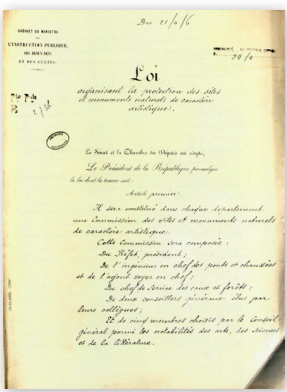 Du 21/4/6
CABINET DU MINISTRE
DE
L'INSTRUCTION PUBLIQUE,
DES BEAUX-ARTS
ET DES CULTES.
24/4
Loi
organisant la protection des sites
et monuments naturels de caractère
artistique.
Le Sénat et la Chambre des Députés ont adopté,
Le Président de la République promulgue
la loi dont la teneur suit :
Article premier.
Il sera constitué dans chaque département
une Commission des sites et monuments naturels
de caractère artistique.
Cette Commission sera composée :
Du Préfet, président ;
De l'ingénieur en chef des ponts et chaussées
et de l'agent voyer en chef ;
Du chef de service des eaux et forêts ;
De deux conseillers généraux élus par
leurs collègues ;
Et de cinq membres choisis par le Conseil
général parmi les notabilités des arts, des sciences
et de la littérature.